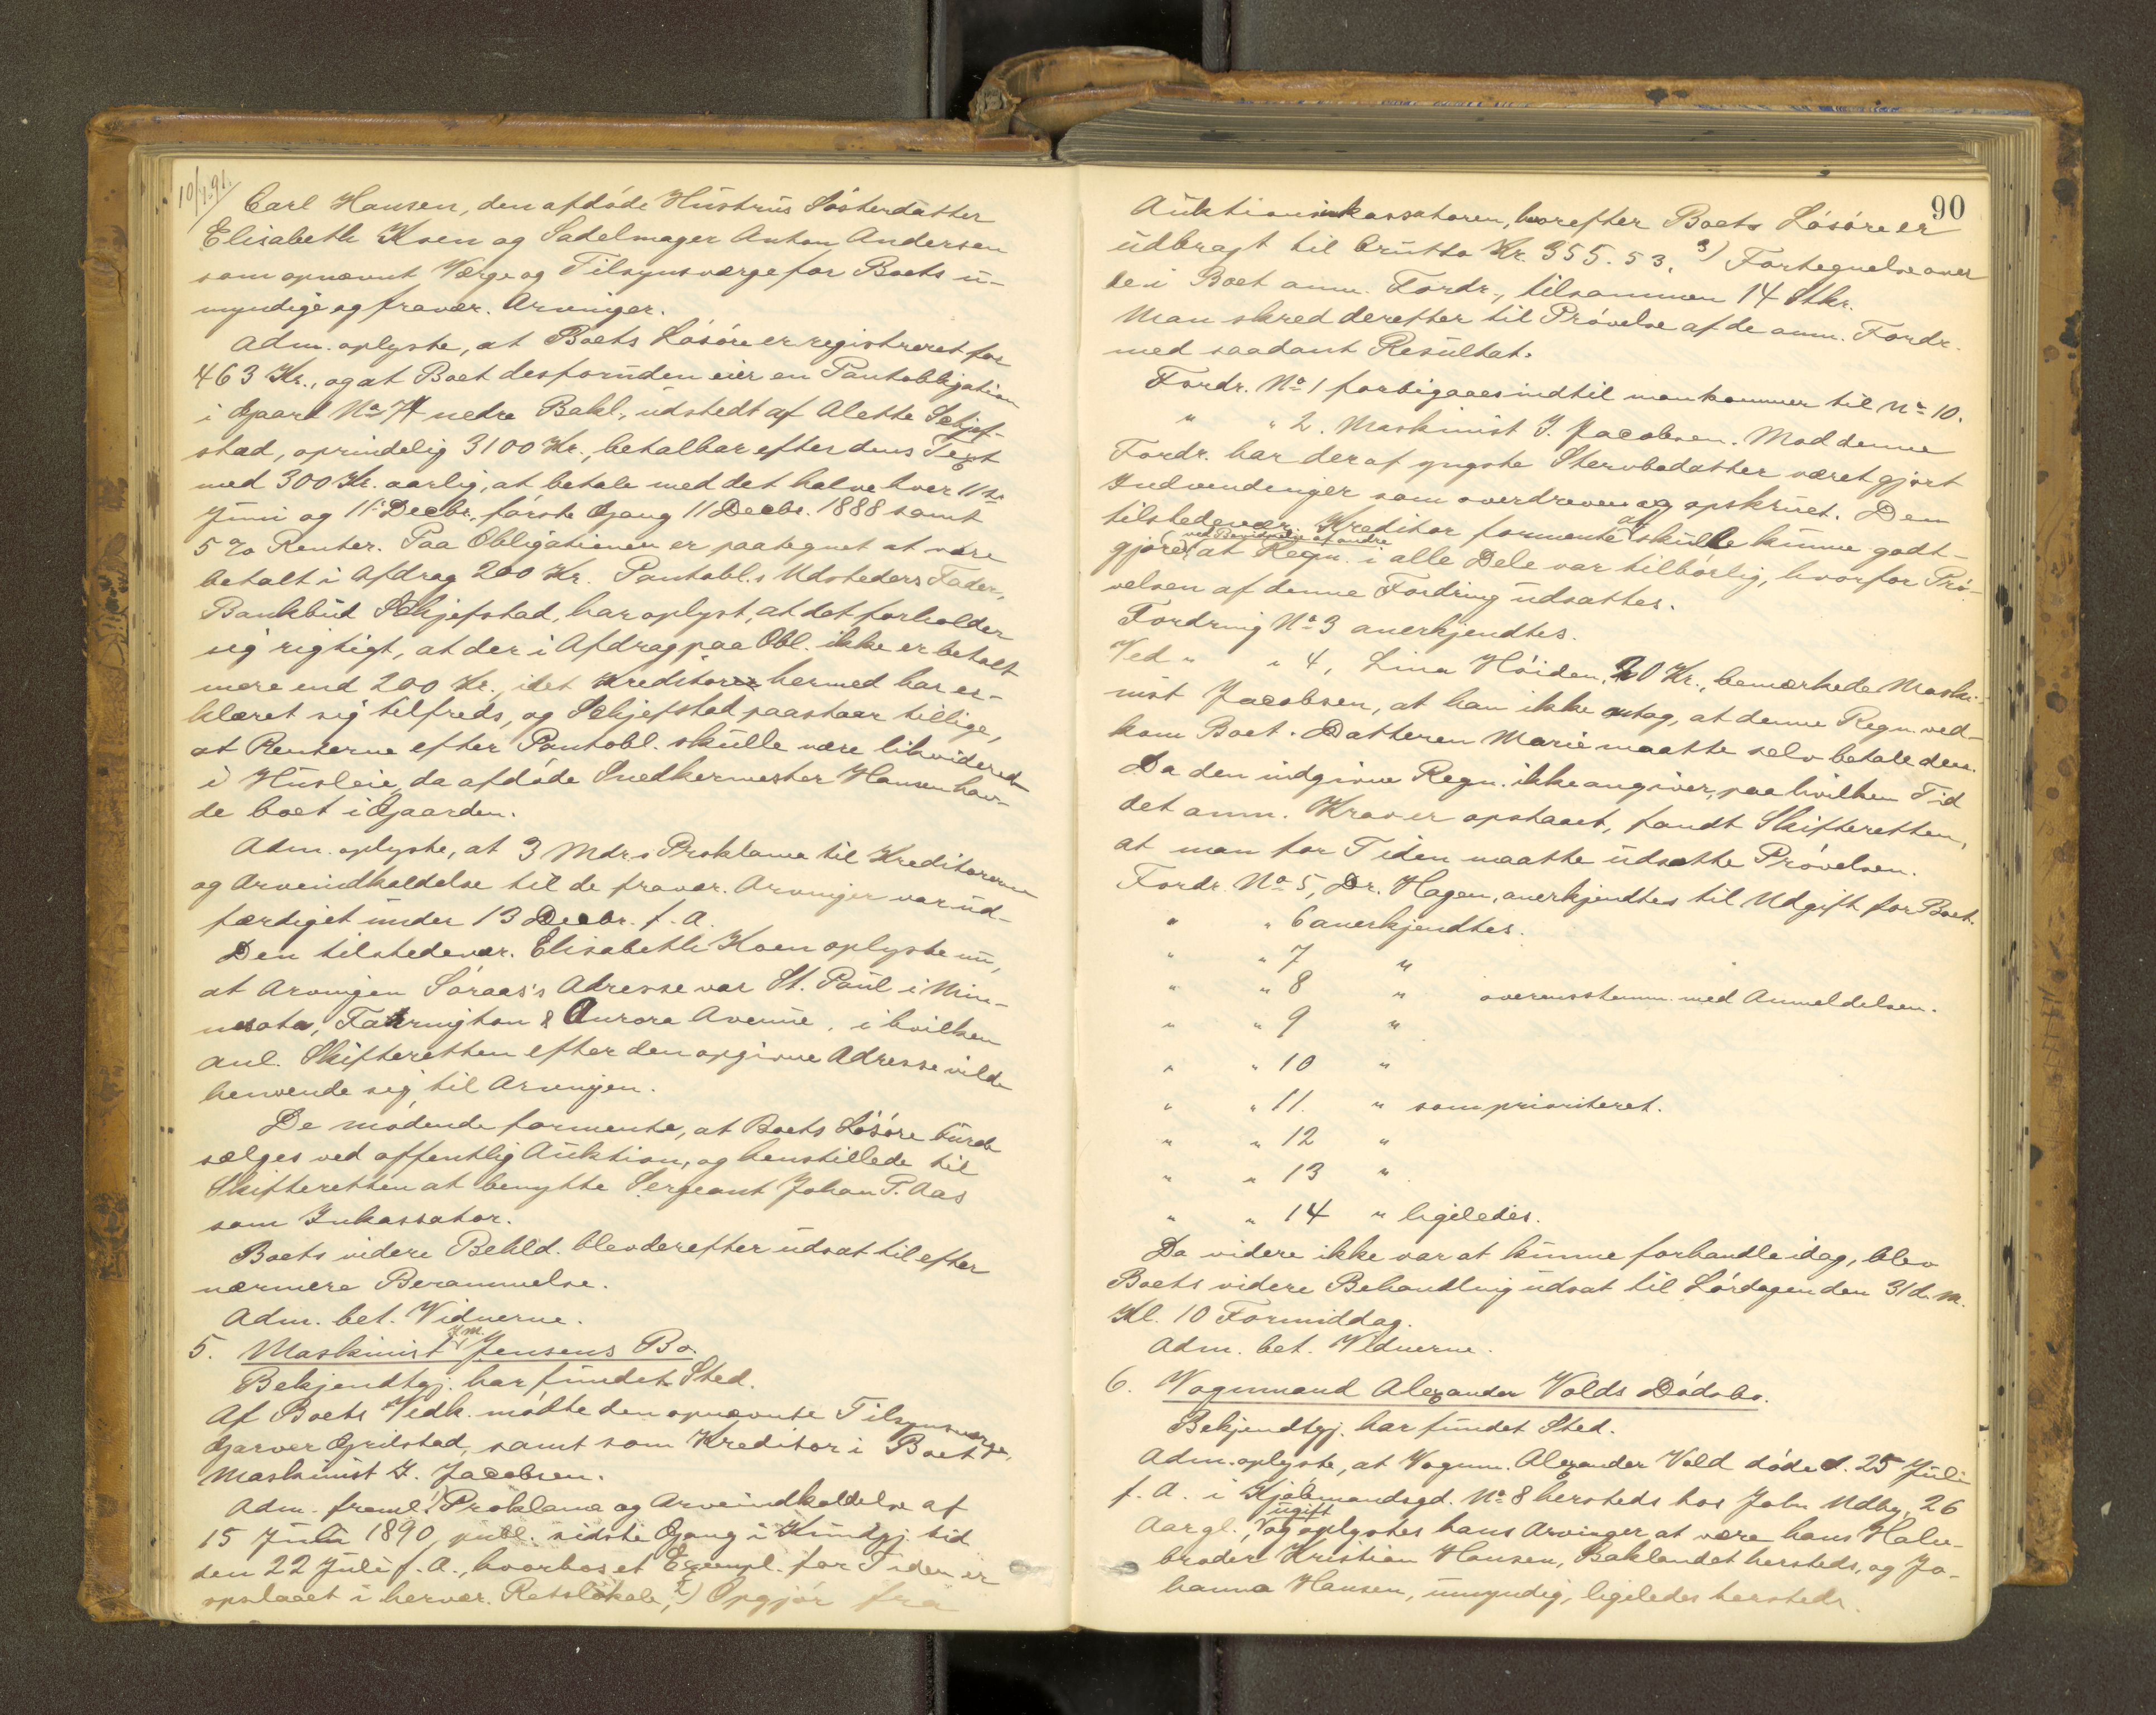 10/1.91.
Carl Hansen, den afdøde Hustrus Søsterdatter
Elisabeth Koen og Sadelmager Anton Andersen
som opnævnt Værge og Tilsynsværge for Boets u-
myndige og fravær. Arvinger.
Adm. oplyste, at Boets Løsøre er registreret for
463 Kr., og at Boet desforuden eier en Pantobligation
i Gaard No 74 nedre Bakl., udstedt af Alette Schjef-
stad, oprindelig 3100 Kr., betalbar efter dens Text
med 300 Kr. aarlig, at betale med det halve hver 11te
Juni og 11. Decbr., første Gang 11 Decbr. 1888 samt
5 % Renter. Paa Obligationen er paategnet at være
betalt i Afdrag 200 Kr. Pantobl.s Udsteders Fader,
Bankbud Schjefstad, har oplyst, at det forholder
sig rigtigt, at der i Afdrag paa Obl. ikke er betalt
mere end 200 Kr., idet Kreditor hermed har er-
klæret sig tilfreds, og Schjefstad paastaar tillige,
at Renterne efter Pantobl. skulle være likvideret
i Husleie, da afdøde Snedkermester Hansen hav-
de boet i Gaarden.
Adm. oplyste, at 3 Mdrs Proklama til Kreditorerne
og Arveindkaldelse til de fravær. Arvinger var ud-
færdiget under 13 Decbr. f. A.
Den tilstedevær. Elisabeth Koen oplyste nu,
at Arvingen Søraas's Adresse var St. Paul i Min-
nesota, Farrington & Aurora Avenue, i hvilken
Anl. Skifteretten efter den opgivne Adresse vilde
henvende sig til Arvingen.
De mødende formente, at Boets Løsøre burde
sælges ved offentlig Auktion, og henstillede til
Skifteretten at benytte Sergeant Johan P. Aas
som Inkassator.
Boets videre Behld. blev derefter udsat til efter
nærmere Berammelse.
Adm. bet. Vidnerne.
5. Maskinist J. M. Jensens Bo.
Bekjendtgj. har fundet Sted.
Af Boets Vedk. mødte den opnævnte Tilsynsværge,
Garver Grilstad, samt som Kreditor i Boet
Maskinist I. Jacobsen.
Adm. freml. 1) Proklama og Arveindkaldelse af
15 Juli 1890, publ. sidste Gang i Kundgj. tid
den 22 Juli f. A., hvorhos et Exempl. for Tiden er
opslaaet i hervær. Retslokale, 2) Opgjør fra
90
Auktionsinkassatoren, hvorefter Boets Løsøre er
udbragt til brutto Kr. 355.53. 3) Fortegnelse over
de i Boet anm. Fordr., tilsammen 14 Stkr.
Man skred derefter til Prøvelse af de anm. Fordr.
med saadant Resultat.
Fordr. No 1 forbigaaes indtil man kommer til No 10.
" " 2. Maskinist I. Jacobsen. Mod denne
Fordr. har der af yngste Stervbodatter været gjort
Indvendinger som overdreven og opskruet. Den
tilstedevær. Kreditor formente at skulle kunne godt-
gjøre ved Benyttelse af andre at Regn. i alle Dele var tilbørlig, hvorfor Prø-
velsen af denne Fordring udsattes.
Fordring No 3 anerkjendtes.
Ved " " 4, Lina Høiden, 20 Kr., bemærkede Maski-
nist Jacobsen, at han ikke antog, at denne Regn. ved-
kom Boet. Datteren Marie maatte selv betale den.
Da den indgivne Regn. ikke angiver, paa hvilken Tid
det anm. Krav er opstaaet, fandt Skifteretten,
at man for Tiden maatte udsætte Prøvelsen.
Fordr. No 5, Dr. Hagen, anerkjendtes til Udgift for Boet.
" " 6 anerkjendtes.
" " 7 "
" " 8 " overensstemm. med Anmeldelsen.
" " 9 "
" " 10 "
" " 11. " som prioriteret.
" " 12 "
" " 13 "
" " 14 " ligeledes.
Da videre ikke var at kunne forhandle idag, blev
Boets videre Behandling udsat til Lørdagen den 31 d. M.
Kl. 10 Formiddag.
Adm. bet. Vidnerne.
6. Vognmand Alexander Volds Dødsbo.
Bekjendtgj. har fundet Sted.
Adm. oplyste, at Vognm. Alexander Vold døde d. 25 Juli
f. A. i Kjøbmandsgd. No 8 hersteds hos John Udby, 26
Aar gl. ugift og oplystes hans Arvinger at være hans Halv-
broder Kristian Hansen, Baklandet hersteds, og Jo-
hanna Hansen, umyndig, ligeledes hersteds.